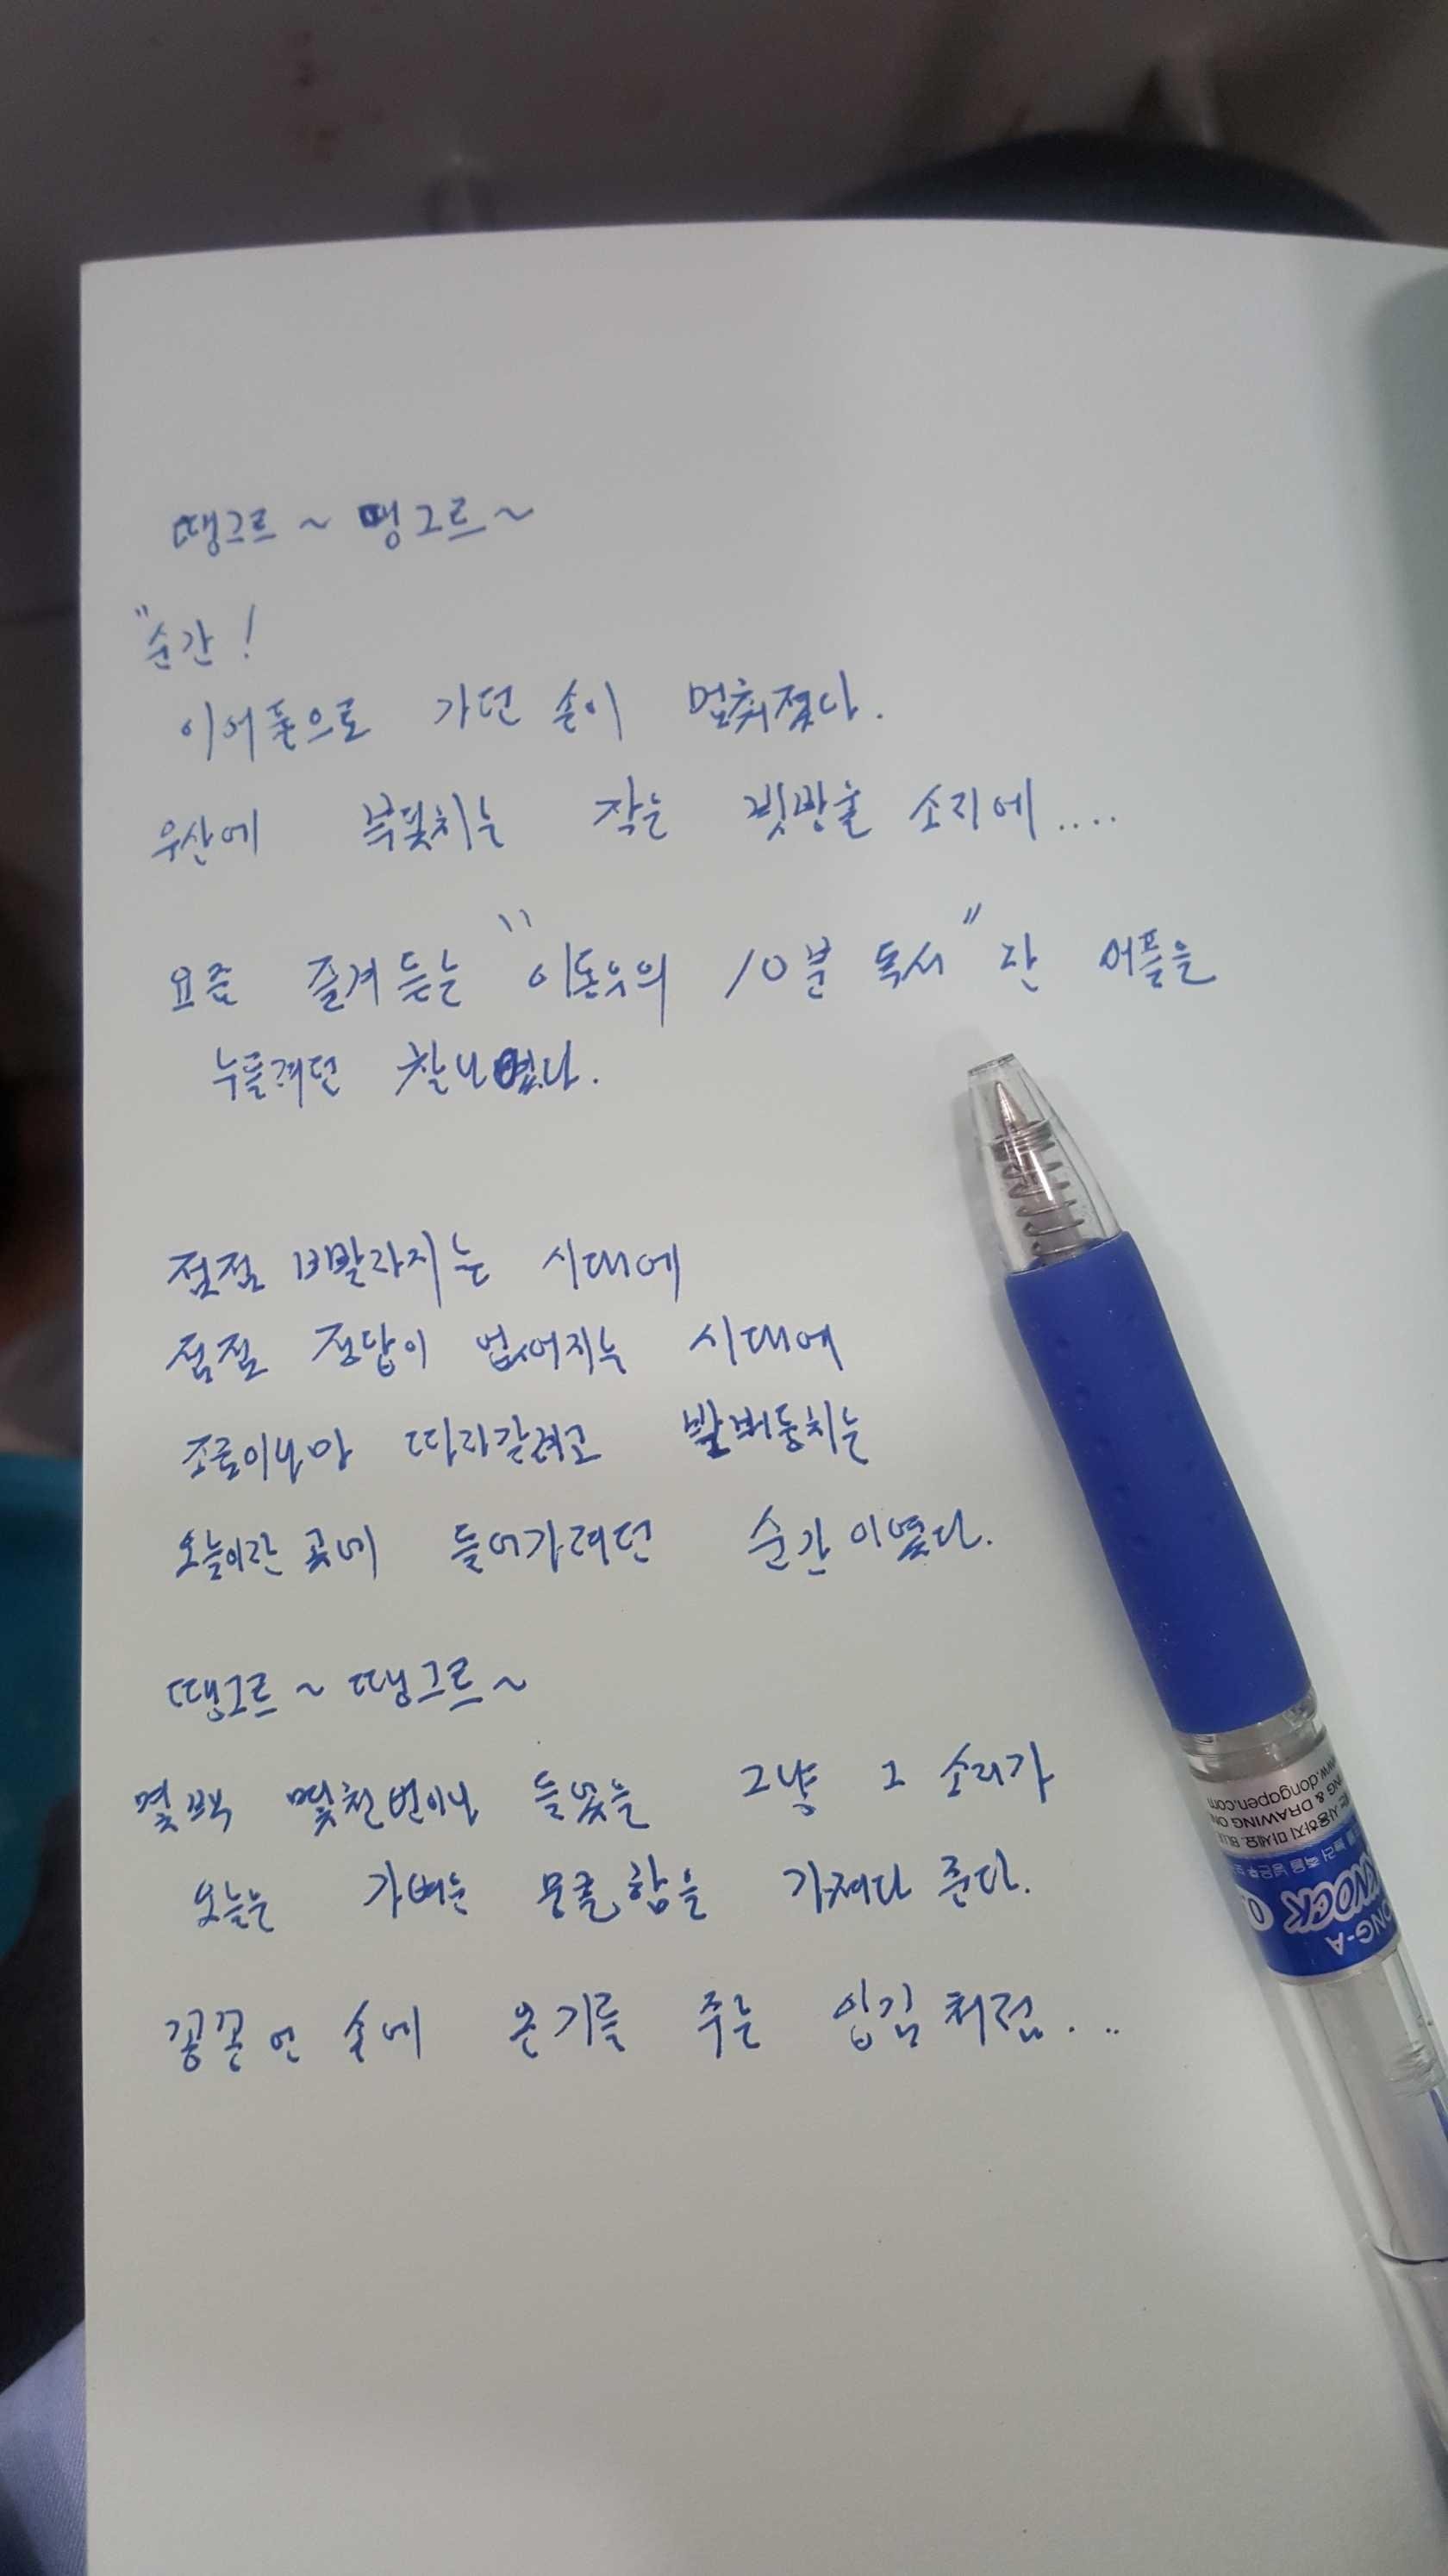 땡그르~ 땡그르~
"순간!
이어폰으로 가던 손이 멈춰졌다.
우산에 부딪치는 작은 빗방울 소리에....
요즘 즐겨듣는 "이동우의 10분 독서"란 어플을
누를려던 찰나였다.
점점 빨라지는 시대에
점점 정답이 없어지는 시대에
조금이나마 따라갈려고 발버둥치는
오늘이란 곳에 들어가려던 순간이였다.
땡그르~ 땡그르~
몇백 몇천번이나 들었을 그냥 그 소리가
오늘은 가벼운 뭉클함을 가져다 준다.
꽁꽁 언 손에 온기를 주는 입김처럼...
www.dongapen.com
DONG-A
KNOCK